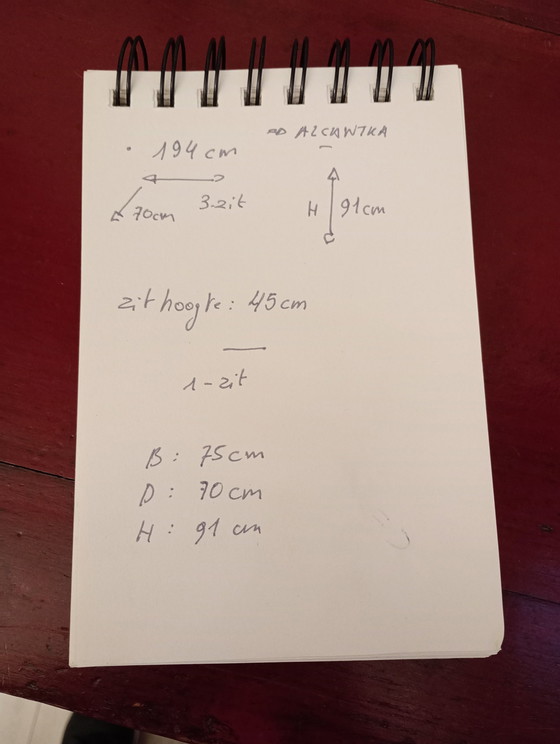 194 cm
70cm
3-zit
H 91cm
zithoogte: 45cm
1-zit
B: 75cm
D: 70cm
H: 91 cm